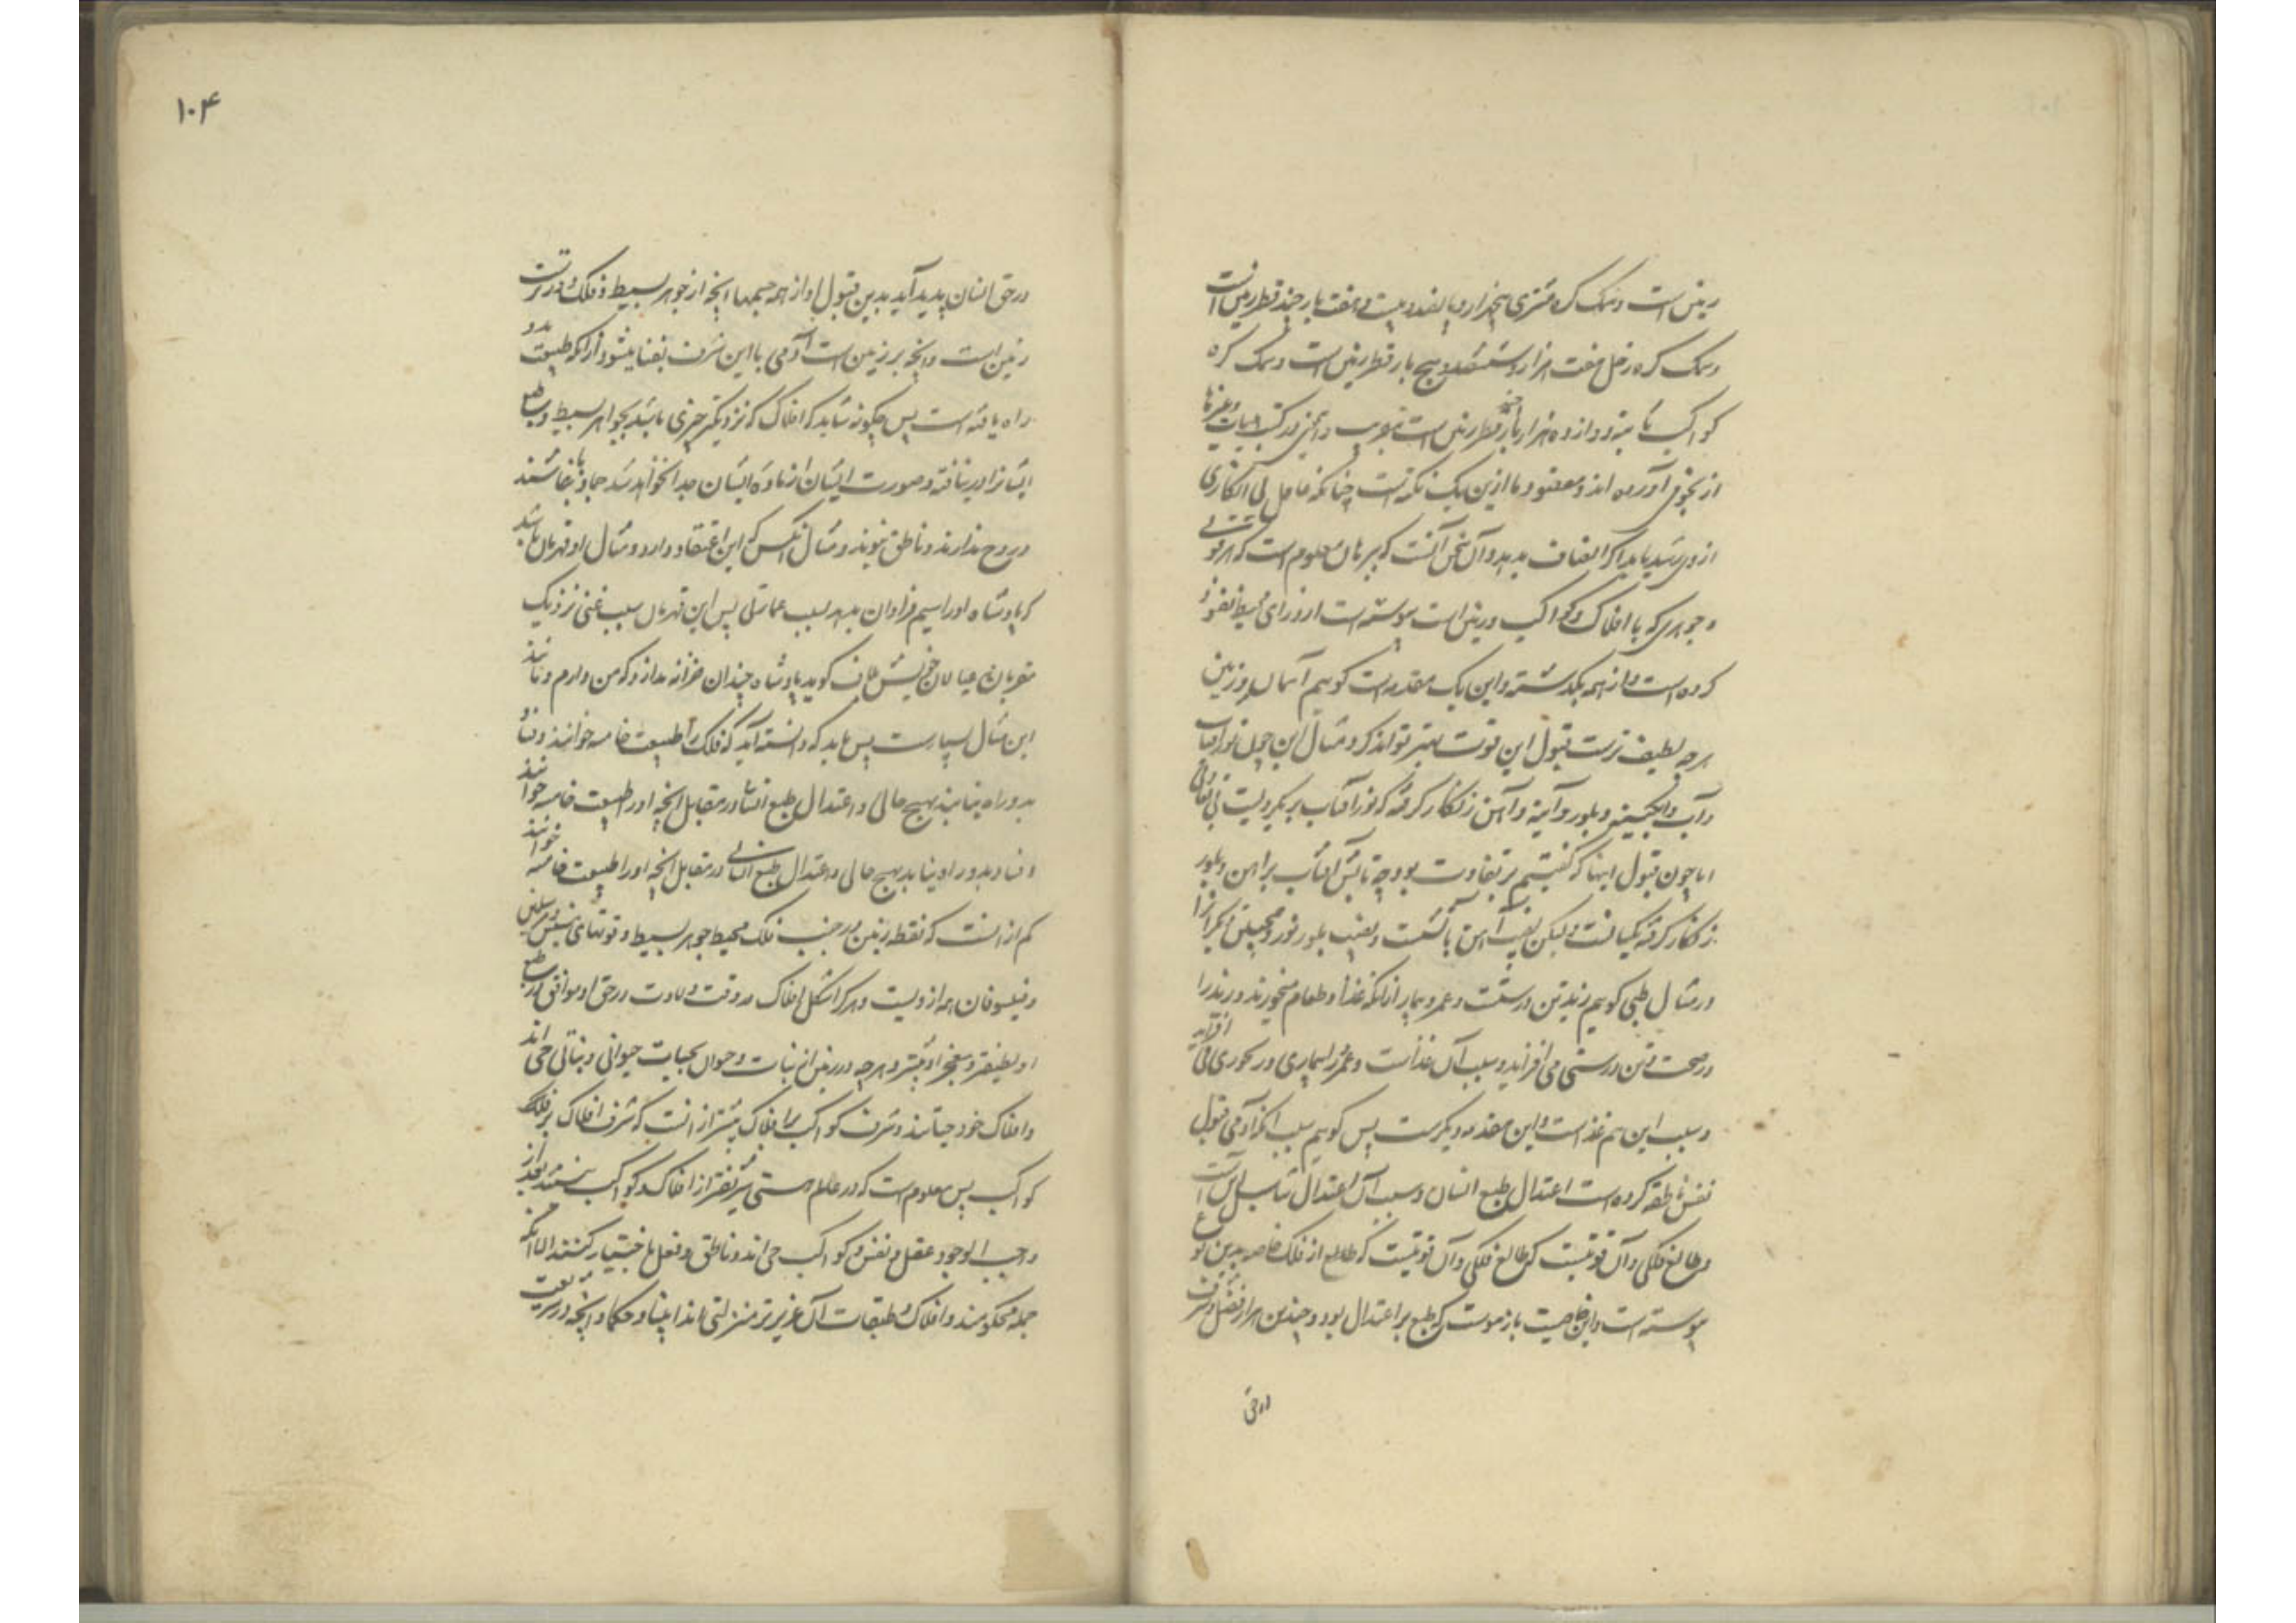 زمین است و سمک کره مشتری پنجهزار و پانصد و بیست و هفت بار چند قطر زمین است
و سمک کره زحل هفت هزار و ششصد و پنج بار قطر زمین است و سمک کره
کواکب ثابته دوازده هزار بار چند قطر زمین است بتقریب و این در کتب هیات و غیرها
از نجوم آورده اند و مقصود ما ازین یک نکته است چنانکه عاقل بی انکاری
از وی رسد باید که انصاف بدهد و آن سخن آنست که ببرهان معلوم است که هر قوتی
و جوهری که با افلاک و کواکب و زمین است پیوسته است از ورای محیط نفوذ
کرده است و از همه بگذشته و این یک مقدمه است گوییم آسمان و زمین
هرچه لطیف ترست قبول این قوت بهتر تواند کرد و مثال این چون نور آفتاب
و آب و آبگینه و بلور و آینه و آهن زنگار گرفته که نور آفتاب بر یکرویست بی تفاوتی
اما چون قبول اینها که گفتیم بر تفاوت بود چه تابش آفتاب بر آهن و بلور
زنگار گرفته یکسانست ولیکن نصیب آهن تابشست و نصیب بلور نور و همچنین دیگرانرا
و مثال طبی گوییم زید تن درستست و عمرو بیمار از آنکه غذا و طعام میخورند و زید را
در صحت و تن درستی می افزاید و سبب آن غذاست و عمرو را بیماری و رنجوری می افزاید
و سبب این هم غذاست و این مقدمه دیگرست پس گوییم سبب آنکه آدمی قبول
نفس ناطقه کرده است اعتدال طبع انسان و سبب آن اعتدال تناسب این است
و طالع فلکی و آن قوتیست که طالع فلکی و آن قوتیست که طالع از فلک خاصه بدین نوع
پیوسته است و این خاصیت بازموست که طبع بر اعتدال بود و چندین هزار فضل و شرف
در حق
۱۰۴
در حق انسان پدید آید بدین قبول او از همه جسمها آنچه از جوهر بسیط و فلک دورترست
زمین است و آنچه بر زمین است آدمی با این شرف بفنا میشود از آنکه طبیعت بدو
راه یافته است پس چگونه شاید که افلاک که نزدیکتر چیزی باشد بجواهر بسیط و طبع
ایشانرا در نیافته و صورت ایشان از ماده ایشان جدا نخواهد شد جماد باشند
و روح ندارند و ناطق نبوند و مثال آنکس که این اعتقاد دارد و مثال او قهرمان باشد
که پادشاه او را سیم فراوان بدهد بسبب عمارتی پس این قهرمان بسبب غنی نزدیک
مقربان و عیالان خویش لاف گوید پادشاه چندان خزانه ندارد که من دارم و مانند
این مثال بسیارست پس باید که دانسته آید که فلک را طبیعت خامسه خوانند و فنا
بدو راه نیابد بهیچ حالی و اعتدال طبع انسان در مقابل آنچه او را طبیعت خامسه خوانند
و فنا بدو راه نیابد بهیچ حالی و اعتدال طبع انسانی در مقابل آنچه او را طبیعت خامسه خوانند
کم از آنست که نقطه زمین در جنب فلک محیط جوهر بسیط و قوتهای نفیس و مرسلین
و فیلسوفان همه ازویست و هر کرا شکل افلاک در وقت ولادت در حق او موافق تر طبع
او لطیفتر و معجز او بیشتر و هرچه در زمین از نبات و حیوان بحیات حیوانی و نباتی حی اند
و افلاک خود حیاتند و شرف کواکب بر افلاک بیشتر از آنست که شرف افلاک بر فلک
کواکب پس معلوم است که در عالم هستی شریفتر از افلاک و کواکب نیستند بعد از
واجب الوجود و عقل و نفس و کواکب حی اند و ناطق و فعل باختیار کنند الا آنکه
جمله محکومند و افلاک و طبقات آن عزیزتر منزلتی اند انبیا و حکما و آنچه در شریعت